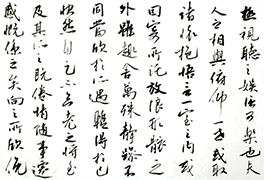 極視聽之娛信可樂也夫
人之相與俯仰一世或取
諸懷抱悟言一室之內或
因寄所託放浪形骸之
外雖趣舍萬殊靜躁不
同當其欣於所遇暫得於己
快然自足不知老之將至
及其所之既倦情隨事遷
感慨係之矣向之所欣俛